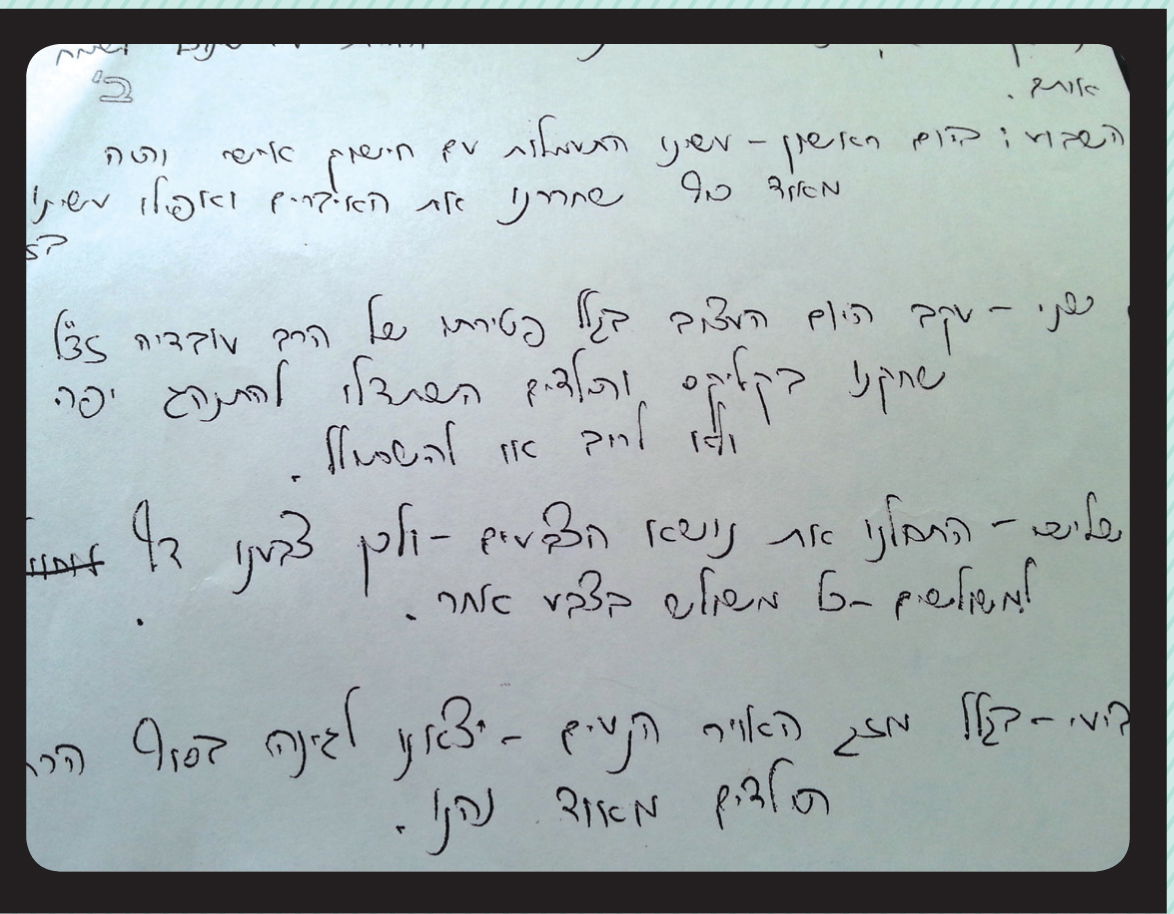 אותם.
ב'
השבוע: ביום ראשון – עשינו התעמלות עם חישוק אישי והיה
מאוד כיף שחררנו את האיברים ואפילו עשינו
שני – עקב היום העצוב בגלל פטירתו של הרב עובדיה זצ"ל
שחקנו בקליקס והילדים השתדלו להתנהג יפה
ולא לריב או להשתולל.
שלישי – התחלנו את נושא הצבעים – ולכן צבענו דף
למשולשים – כל משולש בצבע אחר.
ביעי – בגלל מזג האויר הנעים – יצאנו לגינה בסוף
הילדים מאוד נהנו.